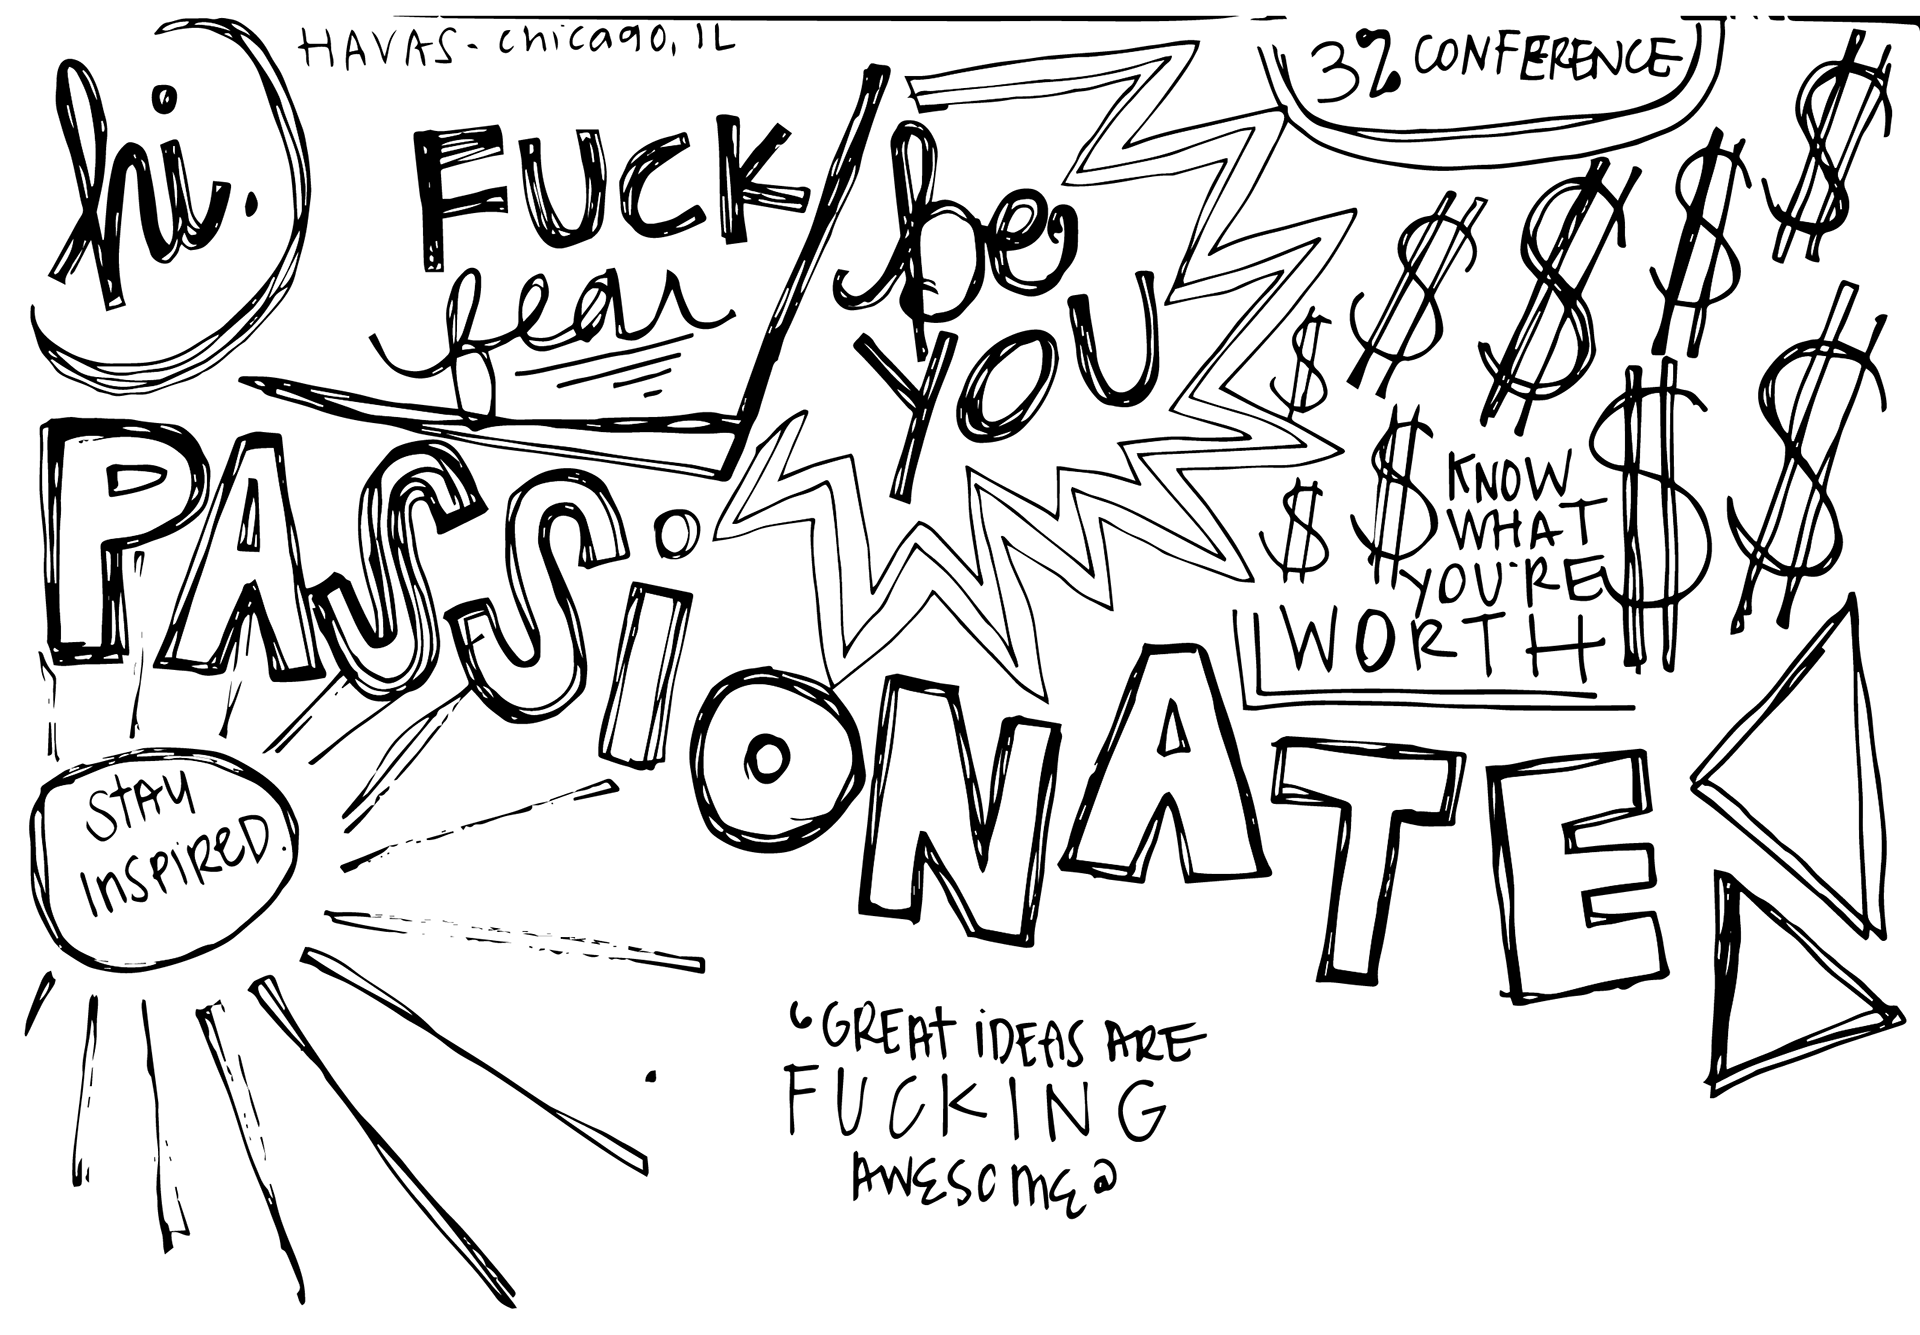 hi.
HAVAS - chicago, IL
3% CONFERENCE
FUCK
fear
be
YOU
$ $ $ $ $ $ $ $ $ $
KNOW
WHAT
YOU'RE
WORTH
PASSiONATE
STAY
INSPIRED.
"GREAT iDEAS ARE
FUCKING
AWESOME"